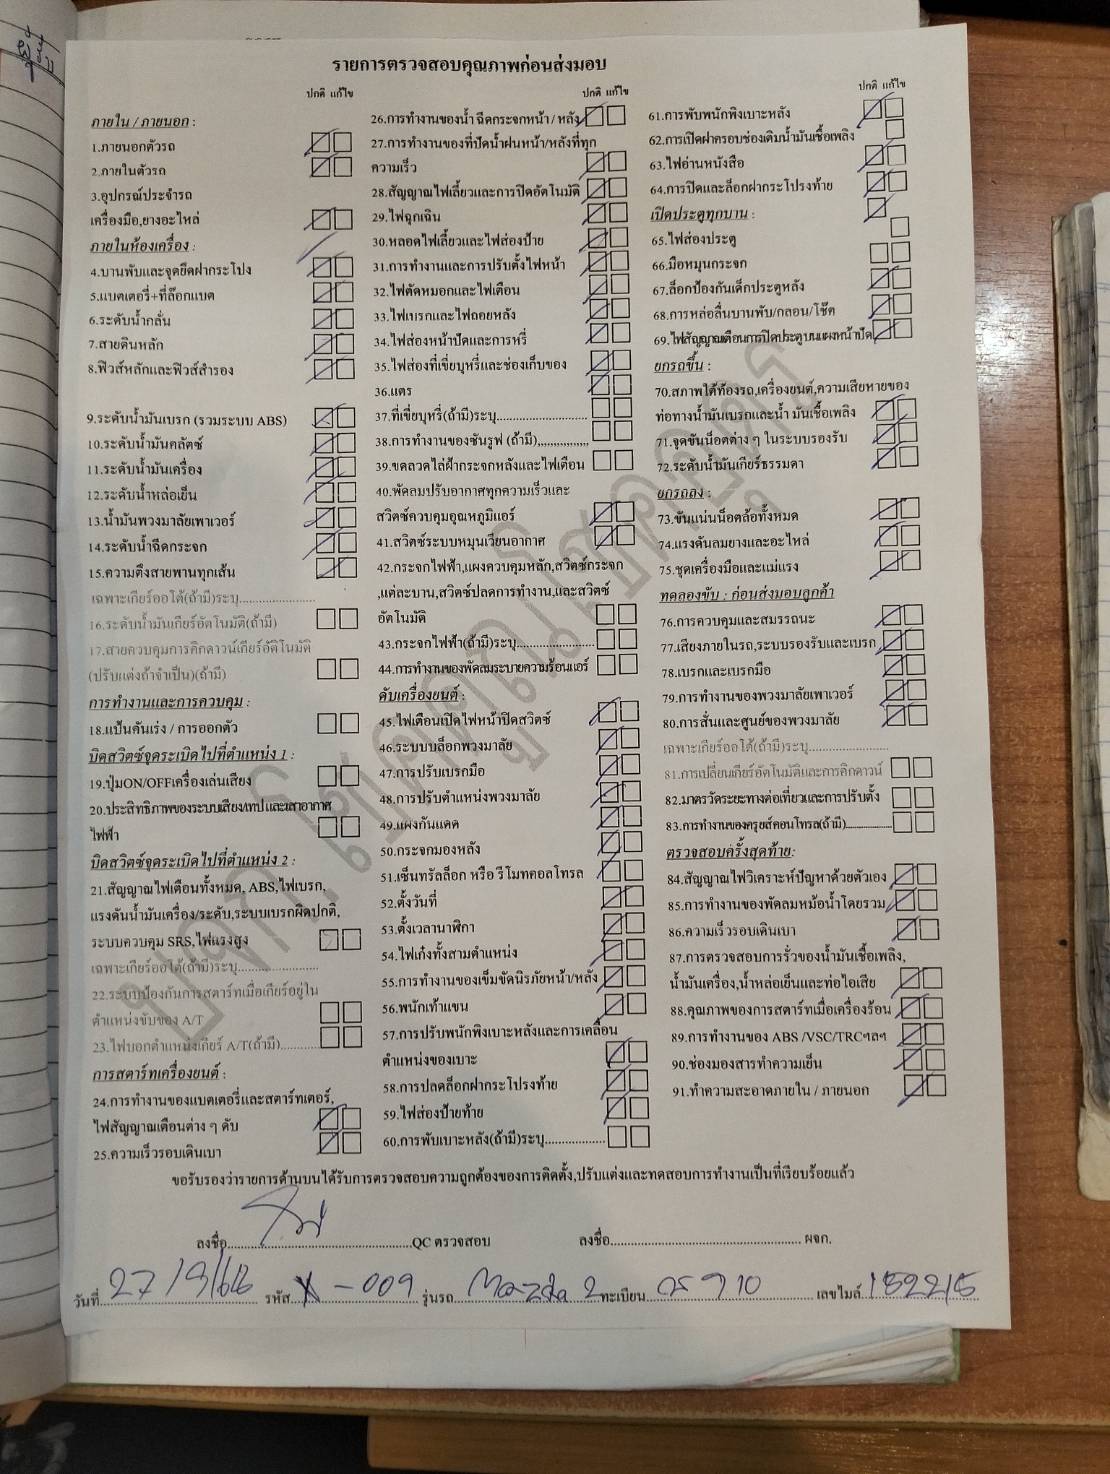 รายการตรวจสอบคุณภาพก่อนส่งมอบ
ปกติ แก้ไข
ภายใน / ภายนอก :
1.ภายนอกตัวรถ
2.ภายในตัวรถ
3.อุปกรณ์ประจำรถ
เครื่องมือ,ยางอะไหล่
ภายในห้องเครื่อง :
4.บานพับและจุดยึดฝากระโปง
5.แบตเตอรี่+ที่ล๊อกแบต
6.ระดับน้ำกลั่น
7.สายดินหลัก
8.ฟิวส์หลักและฟิวส์สำรอง
9.ระดับน้ำมันเบรก (รวมระบบ ABS)
10.ระดับน้ำมันคลัตซ์
11.ระดับน้ำมันเครื่อง
12.ระดับน้ำหล่อเย็น
13.น้ำมันพวงมาลัยเพาเวอร์
14.ระดับน้ำฉีดกระจก
15.ความตึงสายพานทุกเส้น
เฉพาะเกียร์ออโต้(ถ้ามี)ระบุ.......................
16.ระดับน้ำมันเกียร์อัตโนมัติ(ถ้ามี)
17.สายควบคุมการคิกดาวน์เกียร์อัติโนมัติ
(ปรับแต่งถ้าจำเป็น)(ถ้ามี)
การทำงานและการควบคุม :
18.แป้นคันเร่ง / การออกตัว
บิดสวิตซ์จุดระเบิดไปที่ตำแหน่ง 1 :
19.ปุ่มON/OFFเครื่องเล่นเสียง
20.ประสิทธิภาพของระบบเสียง/เทป และเสาอากาศ
ไฟฟ้า
บิดสวิตซ์จุดระเบิดไปที่ตำแหน่ง 2 :
21.สัญญาณไฟเตือนทั้งหมด, ABS,ไฟเบรก,
แรงดันน้ำมันเครื่อง/ระดับ,ระบบเบรกผิดปกติ,
ระบบควบคุม SRS,ไฟแรงสูง
เฉพาะเกียร์ออโต้(ถ้ามี)ระบุ........................
22.ระบบป้องกันการสตาร์ทเมื่อเกียร์อยู่ใน
ตำแหน่งขับของ A/T
23.ไฟบอกตำแหน่งเกียร์ A/T(ถ้ามี)...........
การสตาร์ทเครื่องยนต์ :
24.การทำงานของแบตเตอรี่และสตาร์ทเตอร์,
ไฟสัญญาณเตือนต่าง ๆ ดับ
25.ความเร็วรอบเดินเบา
ปกติ แก้ไข
26.การทำงานของน้ำฉีดกระจกหน้า / หลัง
27.การทำงานของที่ปัดน้ำฝนหน้า/หลังที่ทุก
ความเร็ว
28.สัญญาณไฟเลี้ยวและการปิดอัตโนมัติ
29.ไฟฉุกเฉิน
30.หลอดไฟเลี้ยวและไฟส่องป้าย
31.การทำงานและการปรับตั้งไฟหน้า
32.ไฟตัดหมอกและไฟเตือน
33.ไฟเบรกและไฟถอยหลัง
34.ไฟส่องหน้าปัดและการหรี่
35.ไฟส่องที่เขี่ยบุหรี่และช่องเก็บของ
36.แตร
37.ที่เขี่ยบุหรี่(ถ้ามี)ระบุ...........................
38.การทำงานของซันรูฟ (ถ้ามี)...............
39.ขดลวดไล่ฝ้ากระจกหลังและไฟเตือน
40.พัดลมปรับอากาศทุกความเร็วและ
สวิตซ์ควบคุมอุณหภูมิแอร์
41.สวิตซ์ระบบหมุนเวียนอากาศ
42.กระจกไฟฟ้า,แผงควบคุมหลัก,สวิตซ์กระจก
,แต่ละบาน,สวิตซ์ปลดการทำงาน,และสวิตซ์
อัตโนมัติ
43.กระจกไฟฟ้า(ถ้ามี)ระบุ.......................
44.การทำงานของพัดลมระบายความร้อนแอร์
ดับเครื่องยนต์ :
45.ไฟเตือนเปิดไฟหน้าปิดสวิตซ์
46.ระบบบล็อกพวงมาลัย
47.การปรับเบรกมือ
48.การปรับตำแหน่งพวงมาลัย
49.แผงกันแดด
50.กระจกมองหลัง
51.เซ็นทรัลล็อก หรือ รีโมทคอลโทรล
52.ตั้งวันที่
53.ตั้งเวลานาฬิกา
54.ไฟเก๋งทั้งสามตำแหน่ง
55.การทำงานของเข็มขัดนิรภัยหน้า/หลัง
56.พนักเท้าแขน
57.การปรับพนักพิงเบาะหลังและการเคลื่อน
ตำแหน่งของเบาะ
58.การปลดล็อกฝากระโปรงท้าย
59.ไฟส่องป้ายท้าย
60.การพับเบาะหลัง(ถ้ามี)ระบุ..................
ปกติ แก้ไข
61.การพับพนักพิงเบาะหลัง
62.การเปิดฝาครอบช่องเติมน้ำมันเชื้อเพลิง
63.ไฟอ่านหนังสือ
64.การปิดและล็อกฝากระโปรงท้าย
เปิดประตูทุกบาน :
65.ไฟส่องประตู
66.มือหมุนกระจก
67.ล็อกป้องกันเด็กประตูหลัง
68.การหล่อลื่นบานพับ/กลอน/โช๊ค
69.ไฟสัญญาณเตือนการปิดประตูบนแผงหน้าปัด
ยกรถขึ้น :
70.สภาพใต้ท้องรถ,เครื่องยนต์,ความเสียหายของ
ท่อทางน้ำมันเบรกและน้ำ มันเชื้อเพลิง
71.จุดขันน็อตต่าง ๆ ในระบบรองรับ
72.ระดับน้ำมันเกียร์ธรรมดา
ยกรถลง :
73.ขันแน่นน็อตล้อทั้งหมด
74.แรงดันลมยางและอะไหล่
75.ชุดเครื่องมือและแม่แรง
ทดลองขับ : ก่อนส่งมอบลูกค้า
76.การควบคุมและสมรรถนะ
77.เสียงภายในรถ,ระบบรองรับและเบรก
78.เบรกและเบรกมือ
79.การทำงานของพวงมาลัยเพาเวอร์
80.การสั่นและศูนย์ของพวงมาลัย
เฉพาะเกียร์ออโต้(ถ้ามี)ระบุ........................
81.การเปลี่ยนเกียร์อัตโนมัติและการคิกดาวน์
82.มาตรวัดระยะทางต่อเที่ยวและการปรับตั้ง
83.การทำงานของครุยส์คอนโทรล(ถ้ามี)..............
ตรวจสอบครั้งสุดท้าย:
84.สัญญาณไฟวิเคราะห์ปัญหาด้วยตัวเอง
85.การทำงานของพัดลมหม้อน้ำโดยรวม
86.ความเร็วรอบเดินเบา
87.การตรวจสอบการรั่วของน้ำมันเชื้อเพลิง,
น้ำมันเครื่อง,น้ำหล่อเย็นและท่อไอเสีย
88.คุณภาพของการสตาร์ทเมื่อเครื่องร้อน
89.การทำงานของ ABS /VSC/TRCฯลฯ
90.ช่องมองสารทำความเย็น
91.ทำความสะอาดภายใน / ภายนอก
ขอรับรองว่ารายการด้านบนได้รับการตรวจสอบความถูกต้องของการติดตั้ง,ปรับแต่งและทดสอบการทำงานเป็นที่เรียบร้อยแล้ว
ลงชื่อ..........................................QC ตรวจสอบ ลงชื่อ............................................ ผจก.
วันที่ 27/9/66 รหัส X-009 รุ่นรถ Mazda 2 ทะเบียน 910 เลขไมล์ 152215